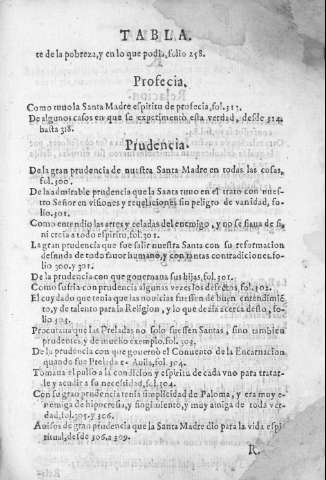 TABLA.
te de la pobreza, y en lo que podia, folio 258.
Profecia.
Como tuuo la Santa Madre espiritu de profecia, fol. 313.
De algunos casos en que se experimentò esta verdad, desde 314.
hasta 318.
Prudencia.
De la gran prudencia de nuestra Santa Madre en todas las cosas,
fol. 300.
De la admirable prudencia que la Santa tuuo en el trato con nues-
tro Señor en visiones y reuelaciones sin peligro de vanidad, fo-
lio. 301.
Como entendio las artes y celadas del enemigo, y no se fiaua de si,
ni creia a todo espiritu, fol. 301.
La gran prudencia que fue salir nuestra Santa con su reformacion
desnuda de todo fauor humano, y con tantas contradiciones. fo-
lio 300. y 301.
De la prudencia con que gouernaua sus hijas, fol. 301.
Como sufria con prudencia algunas vezes los defectos, fol. 302.
El cuydado que tenia que las nouicias fuessen de buen entendimiē-
to, y de talento para la Religion, y lo que dezia acerca desto, fo-
lio 303.
Procuraua que las Preladas no solo fuessen Santas, sino tambien
prudentes, y de mucho exemplo. fol. 303.
De la prudencia con que gouernò el Conuento de la Encarnacion
quando fue Prelada en Auila, fol. 304.
Tomaua el pulso a la condicion y espiritu de cada vno para tratar-
le y acudir a su necessidad, fol. 304.
Con su gran prudencia tenia simplicidad de Paloma, y era muy e-
nemiga de hipocresia, y fingimiento, y muy amiga de toda ver-
dad, fol. 305. y 306.
Auisos de gran prudencia que la Santa Madre dio para la vida espi
ritual, desde 306. a 309.
R.